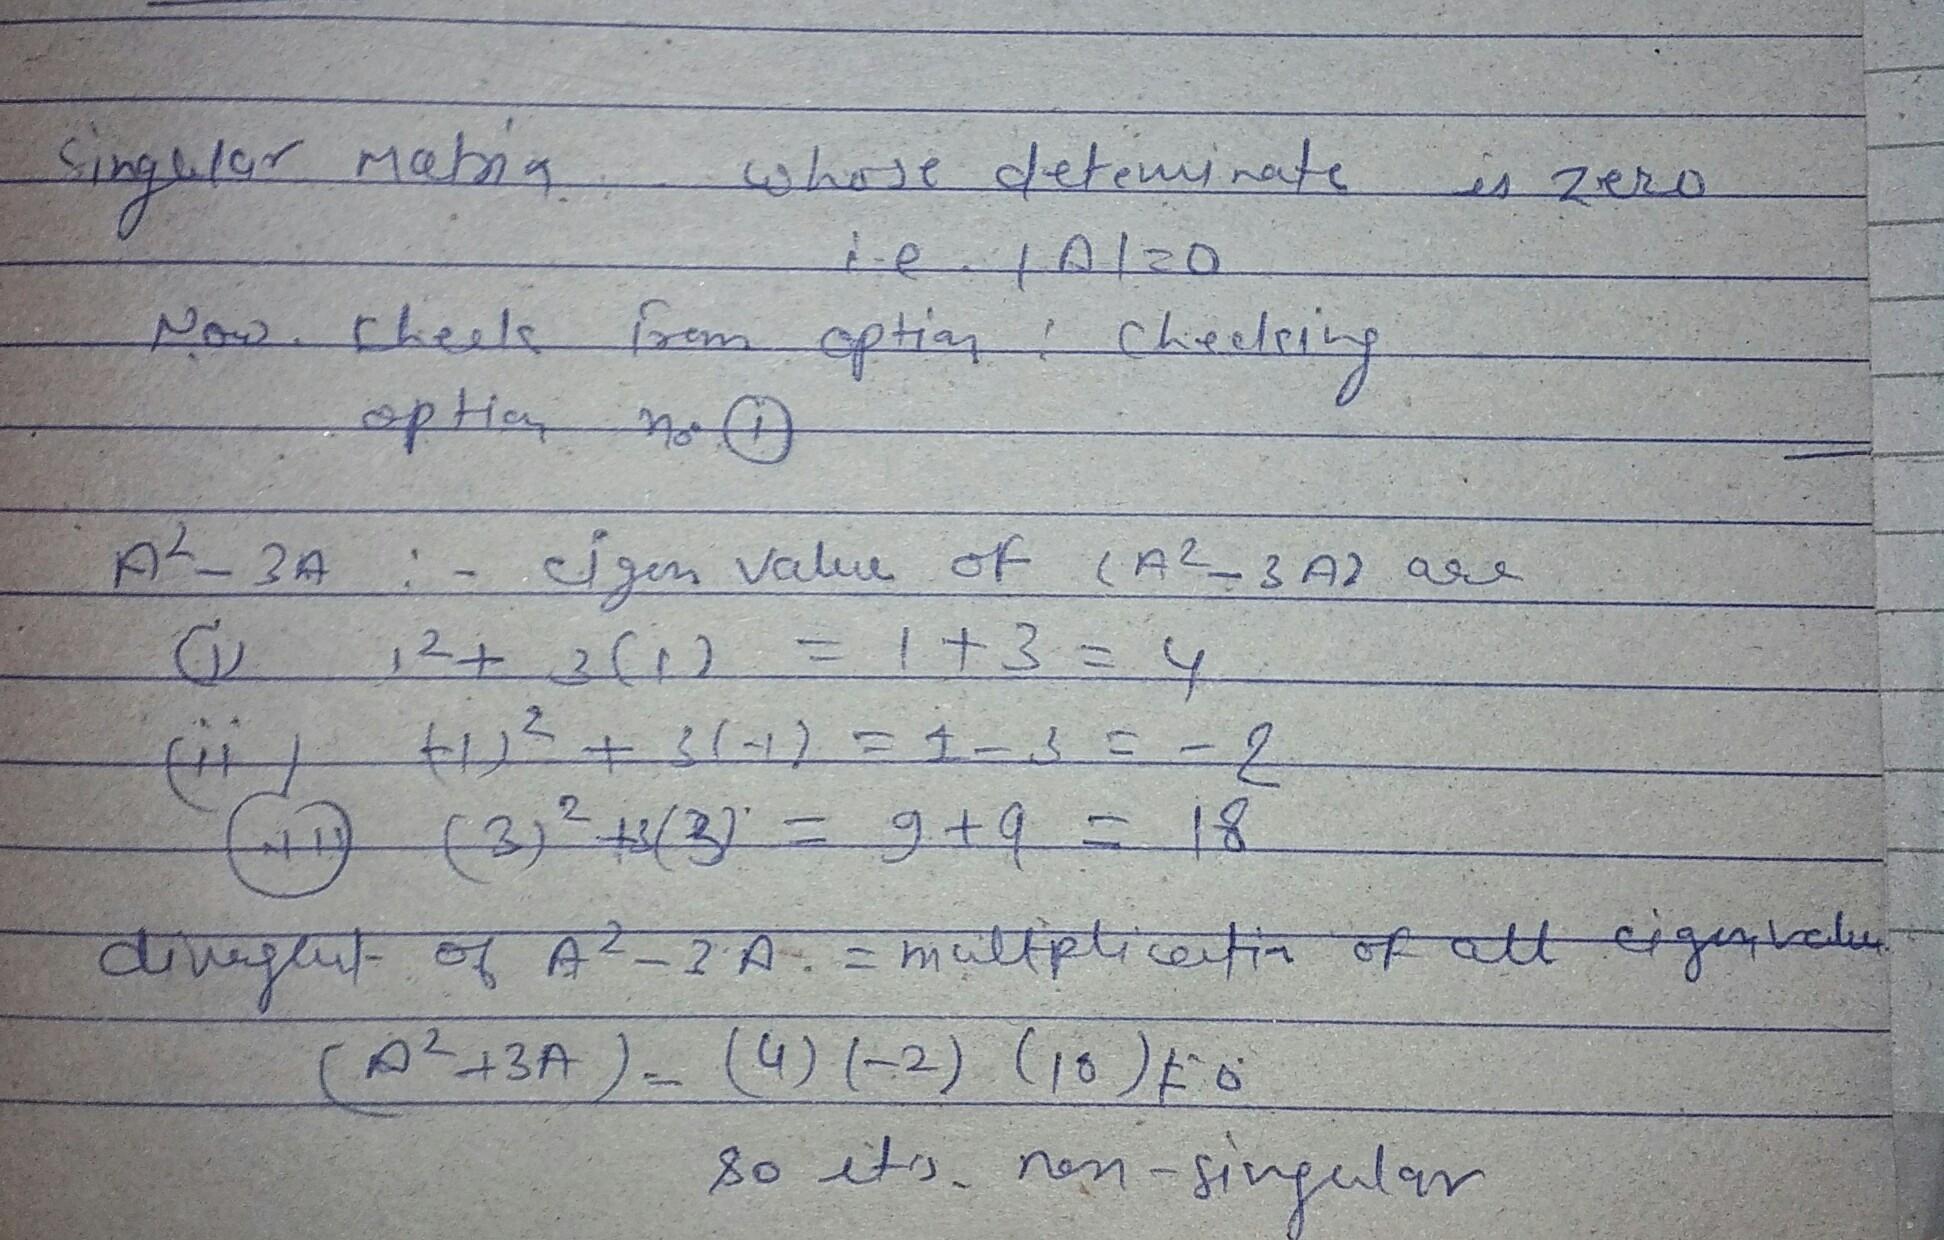 Singular Matrix whose determinate is zero
i.e. |A|=0
Now. check from option : checking
option no (i)
A² - 3A :- eigen value of (A² - 3A) are
(i) 1² + 3(1) = 1 + 3 = 4
(ii) (-1)² + 3(-1) = 1 - 3 = -2
(iii) (3)² + 3(3) = 9 + 9 = 18
of A² - 3A. = multiplication of all eigenvalue
(A² + 3A) = (4) (-2) (18) ≠ 0
so its. non-singular